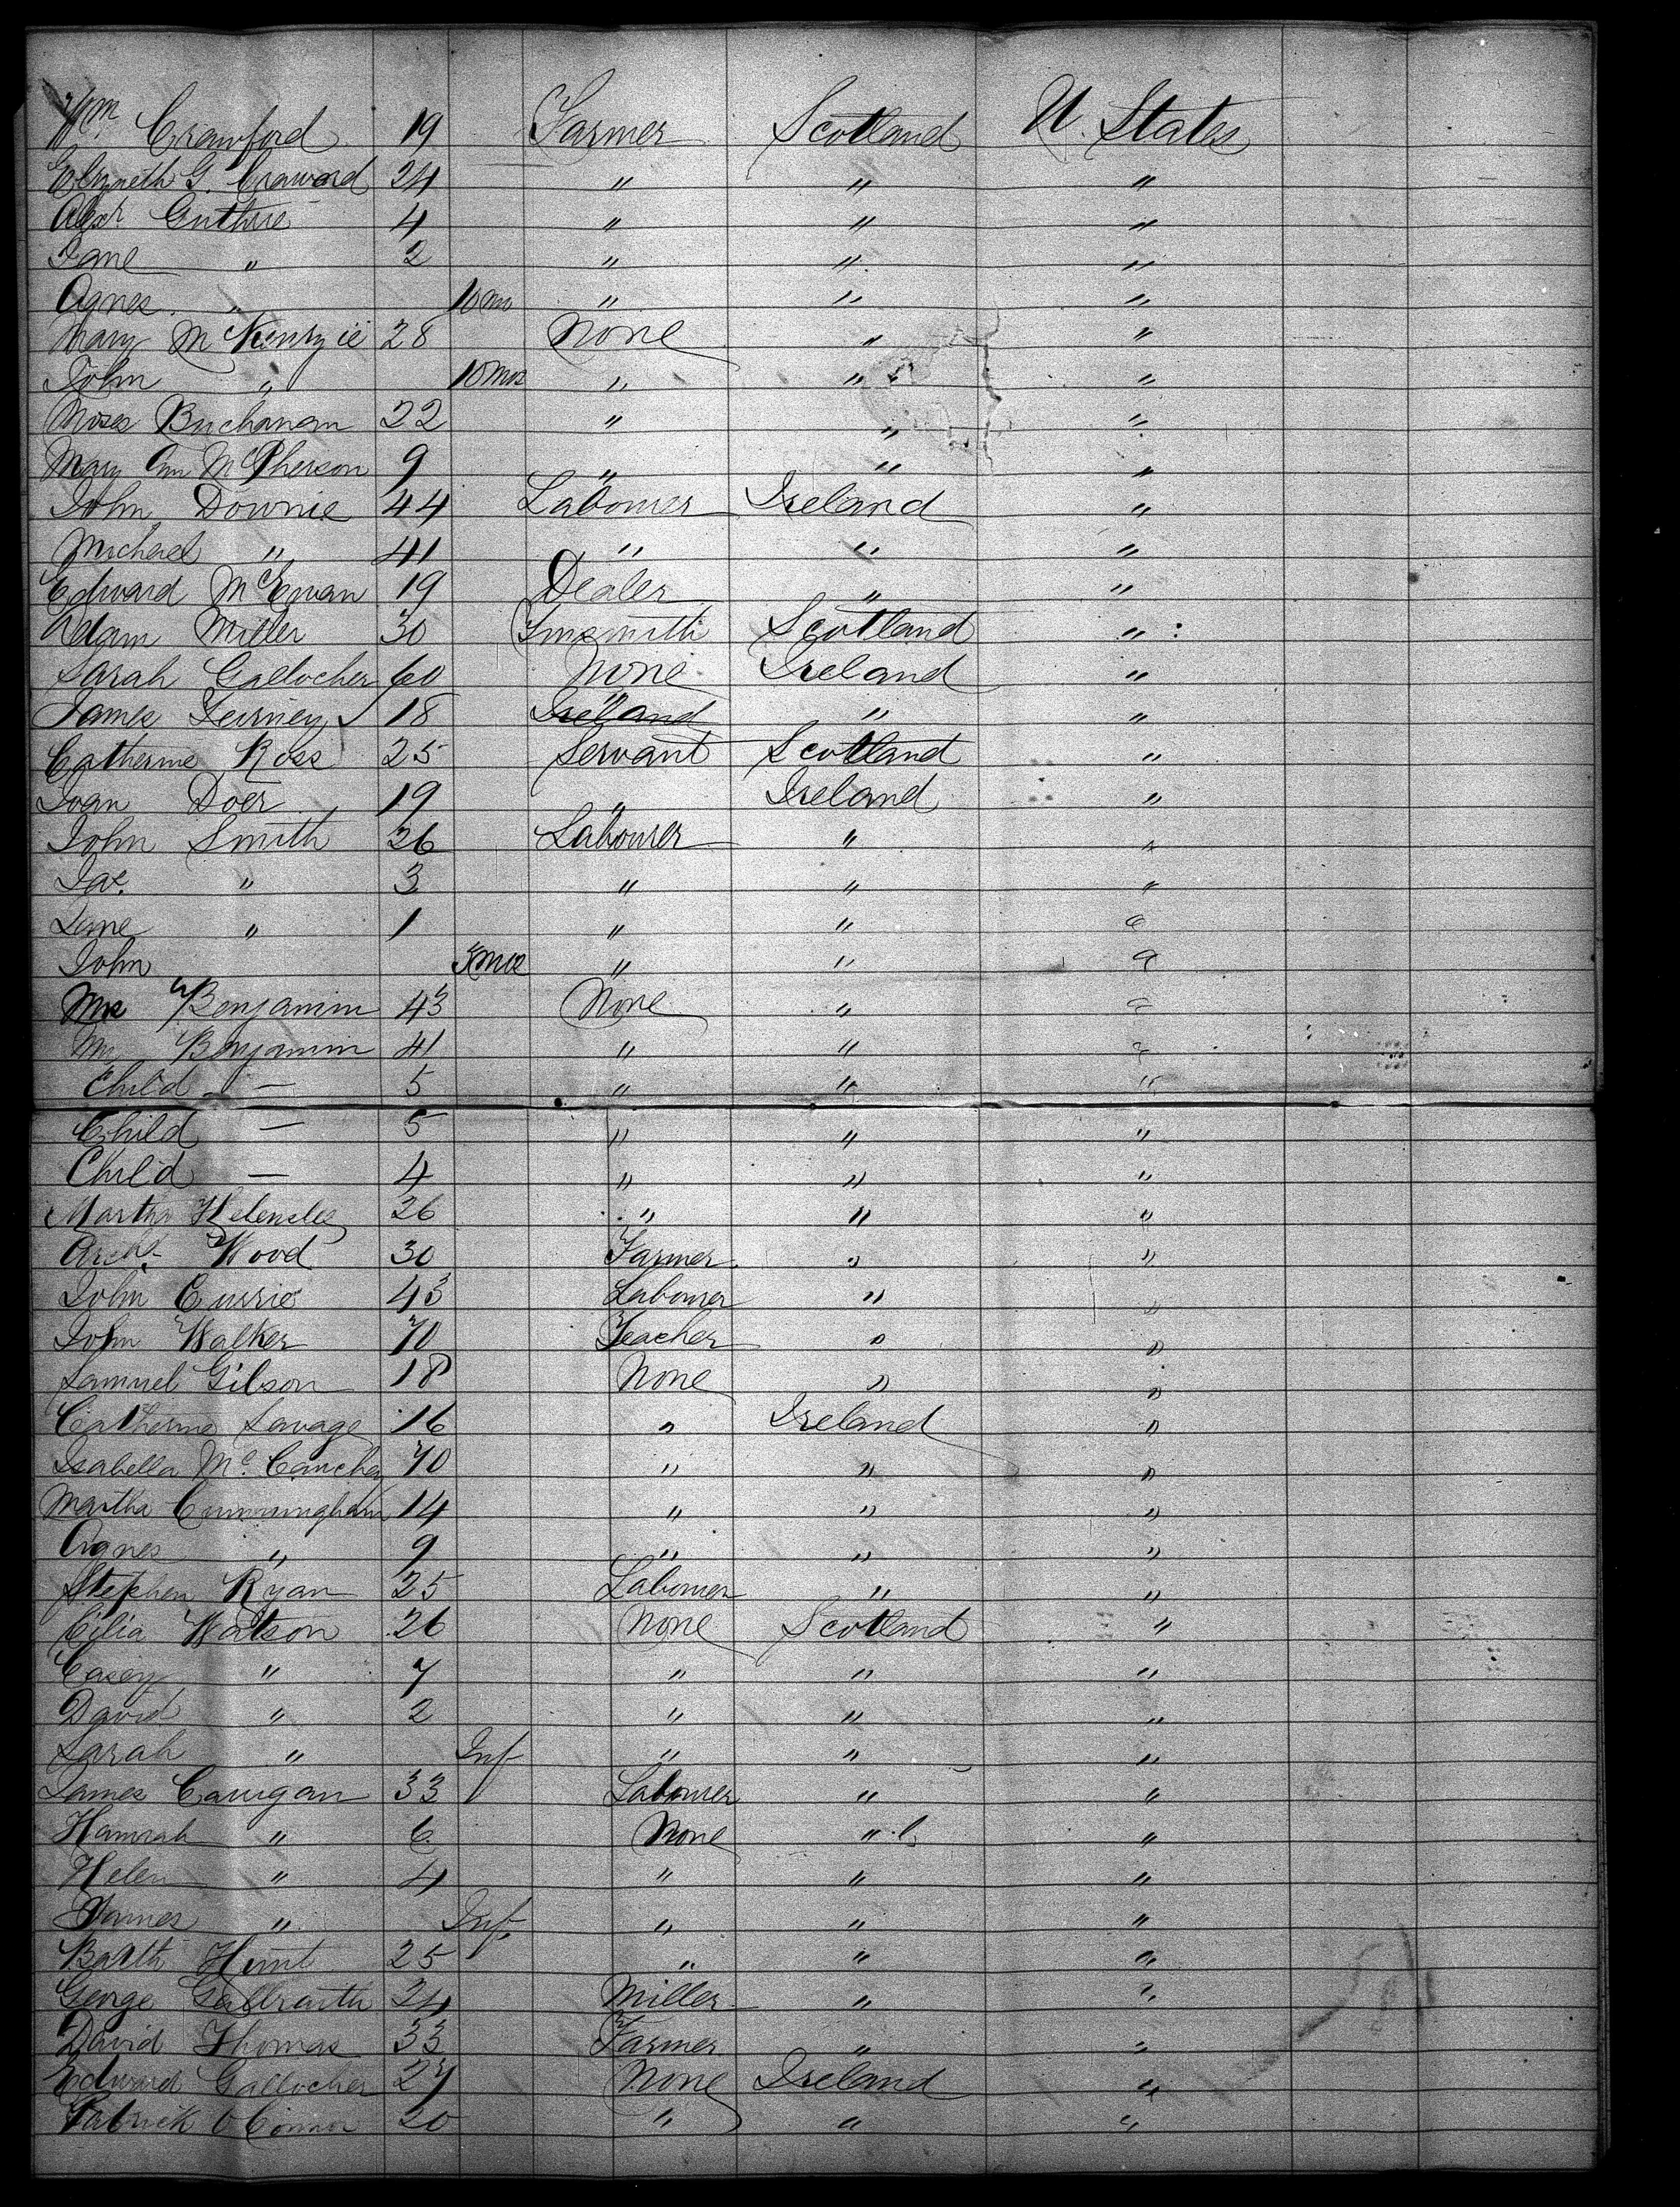 Wm Crawford 19 Farmer Scotland U. States
Elizneth G. Crawford 24 " " "
Alexr Guthrie 4 " " "
Jane " 2 " " "
Agnes " 10 mo " " "
Mary McKenzie 28 None " "
John " 10 mos " " "
Moses Buchanan 22 " " "
Mary Ann McPherson 9 " " "
John Downie 44 Labourer Ireland "
Michael " 41 " " "
Edward McEwan 19 Dealer " "
Adam Miller 30 Tinsmith Scotland "
Sarah Gallocher 60 None Ireland "
James Teirney 18 " Ireland " "
Catherine Ross 25 Servant Scotland "
Joan Doer 19 " Ireland "
John Smith 26 Labourer " "
Jas. " 3 " " "
Jane " 1 " " "
John 3 mos " " "
Mrs Benjamin 43 None " "
Mr Benjamin 41 " " "
Child — 5 " " "
Child — 5 " " "
Child — 4 " " "
Martha 26 " " "
Archd. Wood 30 Farmer " "
John Currie 43 Labourer " "
John Walker 70 Teacher " "
Samuel Gilson 18 None " "
Catherine Savage 16 " Ireland "
Isabella Mc. 70 " " "
Martha Cunningham 14 " " "
Agnes " 9 " " "
Stephen Ryan 25 Labourer " "
Cilia Watson 26 None Scotland "
Casey " 7 " " "
David " 2 " " "
Sarah " Inf " " "
James Carrigan 33 Labourer " "
Hannah " 6 None " "
Helen " 4 " " "
James " Inf. " " "
Barth Hunt 25 " " "
George Galbraith 24 Miller " "
David Thomas 33 Farmer " "
Edward Gallocher 27 None Ireland "
Patrick O Connor 20 " " "